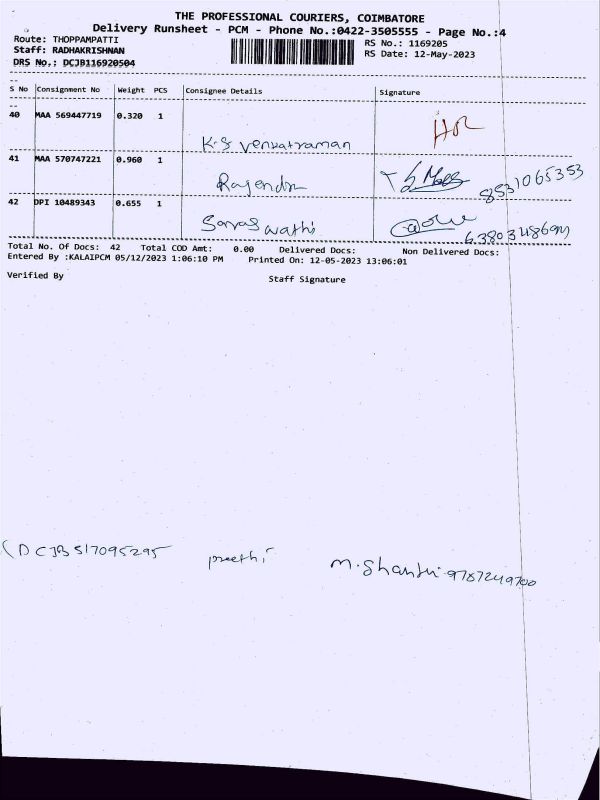 THE PROFESSIONAL COURIERS, COIMBATORE
Delivery Runsheet - PCM - Phone No.:0422-3505555 - Page No.:4
Route: THOPPAMPATTI
Staff: RADHAKRISHNAN
DRS No.: DCJB116920504
RS No.: 1169205
RS Date: 12-May-2023
S No Consignment No Weight PCS Consignee Details Signature
40 MAA 569447719 0.320 1
K.S Venkatraman
41 MAA 570747221 0.960 1
Rajendra 8531065353
42 DPI 10489343 0.655 1
Saraswathi
Total No. Of Docs: 42 Total COD Amt: 0.00 Delivered Docs: Non Delivered Docs:
Entered By :KALAIPCM 05/12/2023 1:06:10 PM Printed On: 12-05-2023 13:06:01
Verified By Staff Signature
DCJB517095295 preethi M.Shanthi 9787249700